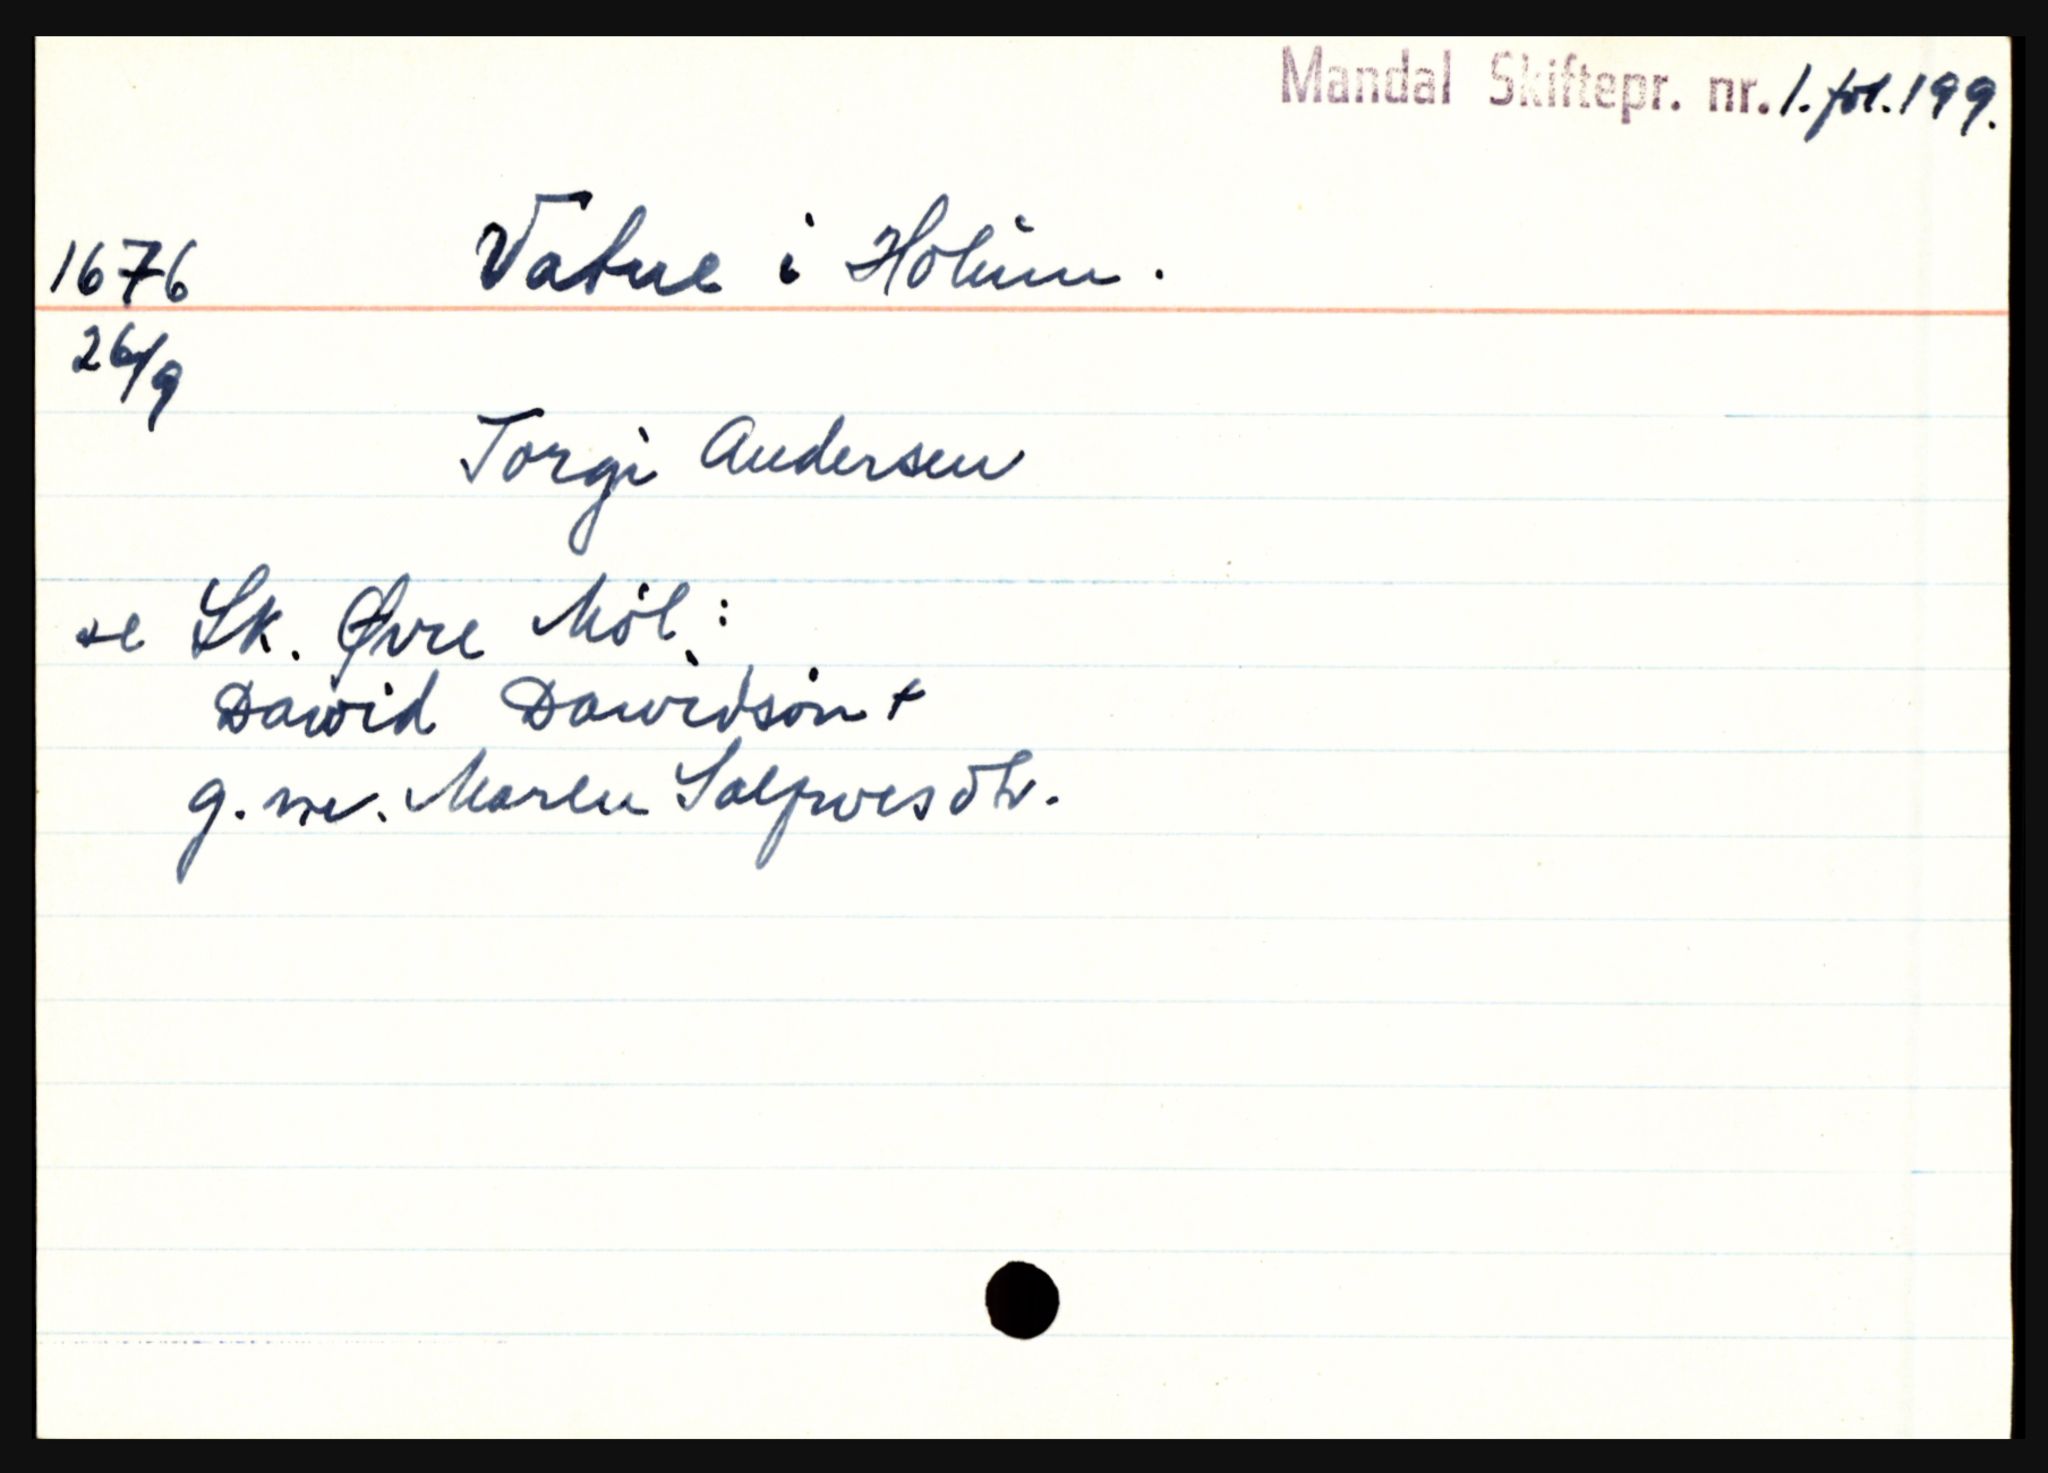 Mandal Skiftepr. nr. 1. fol. 199.
1676 Vatne i Holum.
26/9
Torgi Andersen
se Sk. Øvre Møl:
Dawid Dawidsøn +
g. m. Maren Salfwesdtr.